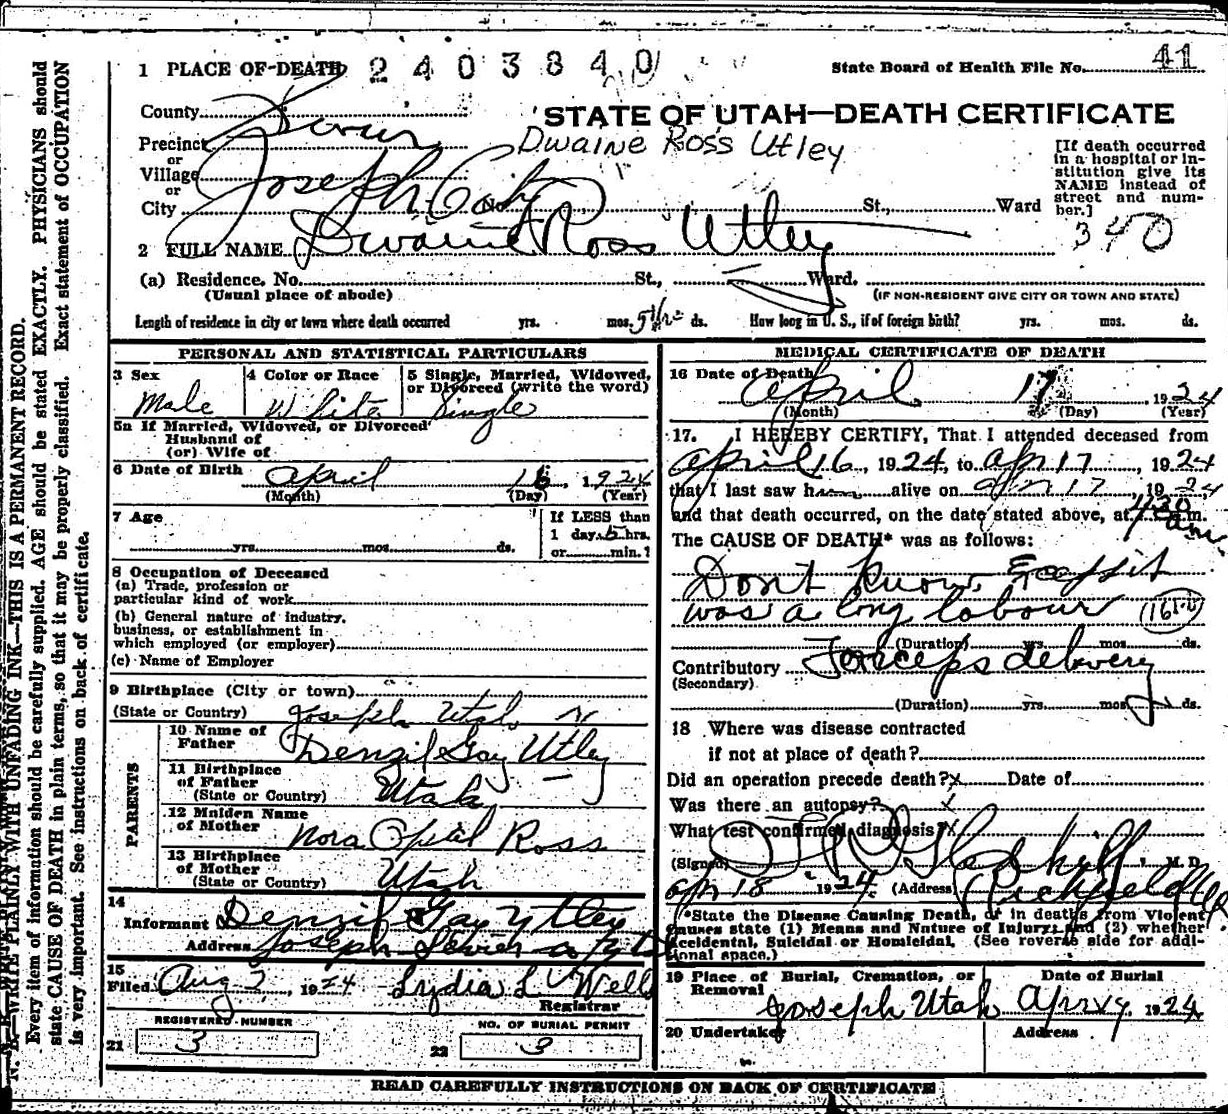 1 PLACE OF DEATH 2403840 State Board of Health File No. 41
County Sevier
STATE OF UTAH—DEATH CERTIFICATE
Precinct
Dwaine Ross Utley
or
Village
or
City Joseph City No. St., Ward
[If death occurred
in a hospital or in-
stitution give its
NAME instead of
street and num-
ber.]
340
2 FULL NAME Dwaine Ross Utley
(a) Residence. No. St., Ward.
(Usual place of abode) (IF NON-RESIDENT GIVE CITY OR TOWN AND STATE)
Length of residence in city or town where death occurred yrs. mos. ds. How long in U. S., if of foreign birth? yrs. mos. ds.
PERSONAL AND STATISTICAL PARTICULARS
3 Sex
Male
4 Color or Race
White
5 Single, Married, Widowed,
or Divorced (write the word)
Single
5a If Married, Widowed, or Divorced
Husband of
(or) Wife of
6 Date of Birth April 16, 1924
(Month) (Day) (Year)
7 Age
yrs. mos. ds.
If LESS than
1 day 5 hrs.
or min.?
8 Occupation of Deceased
(a) Trade, profession or
particular kind of work
(b) General nature of industry,
business, or establishment in
which employed (or employer)
(c) Name of Employer
9 Birthplace (City or town)
(State or Country) Joseph Utah
PARENTS
10 Name of
Father Denzil Gay Utley
11 Birthplace
of Father
(State or Country) Utah
12 Maiden Name
of Mother Nora Opal Ross
13 Birthplace
of Mother
(State or Country) Utah
14
Informant Denzil Gay Utley
Address Joseph Sevier Co
15
Filed Aug 2, 1924 Lydia L Wells
Registrar
REGISTERED NUMBER
21 3
NO. OF BURIAL PERMIT
22 3
MEDICAL CERTIFICATE OF DEATH
16 Date of Death April 17, 1924
(Month) (Day) (Year)
17. I HEREBY CERTIFY, That I attended deceased from
April 16, 1924, to Apr 17, 1924
that I last saw him alive on Apr 17, 1924
and that death occurred, on the date stated above, at 4:30 m.
am
The CAUSE OF DEATH* was as follows:
Don't know, Except it
was a long labour
(Duration) yrs. mos. ds.
Contributory Forceps delivery
(Secondary)
(Duration) yrs. mos. ds.
18 Where was disease contracted
if not at place of death?
Did an operation precede death? x Date of
Was there an autopsy? x
What test confirmed diagnosis? x
(Signed) Gledhill, M. D.
Apr 18, 1924. (Address) Richfield
*State the Disease Causing Death, or in deaths from Violent
Causes state (1) Means and Nature of Injury; and (2) whether
Accidental, Suicidal or Homicidal. (See reverse side for addi-
tional space.)
19 Place of Burial, Cremation, or
Removal
Joseph Utah
Date of Burial
1924
20 Undertaker Address
READ CAREFULLY INSTRUCTIONS ON BACK OF CERTIFICATE
N. B.—WRITE PLAINLY WITH UNFADING INK—THIS IS A PERMANENT RECORD.
Every item of information should be carefully supplied. AGE should be stated EXACTLY. PHYSICIANS should
state CAUSE OF DEATH in plain terms, so that it may be properly classified. Exact statement of OCCUPATION
is very important. See instructions on back of certificate.